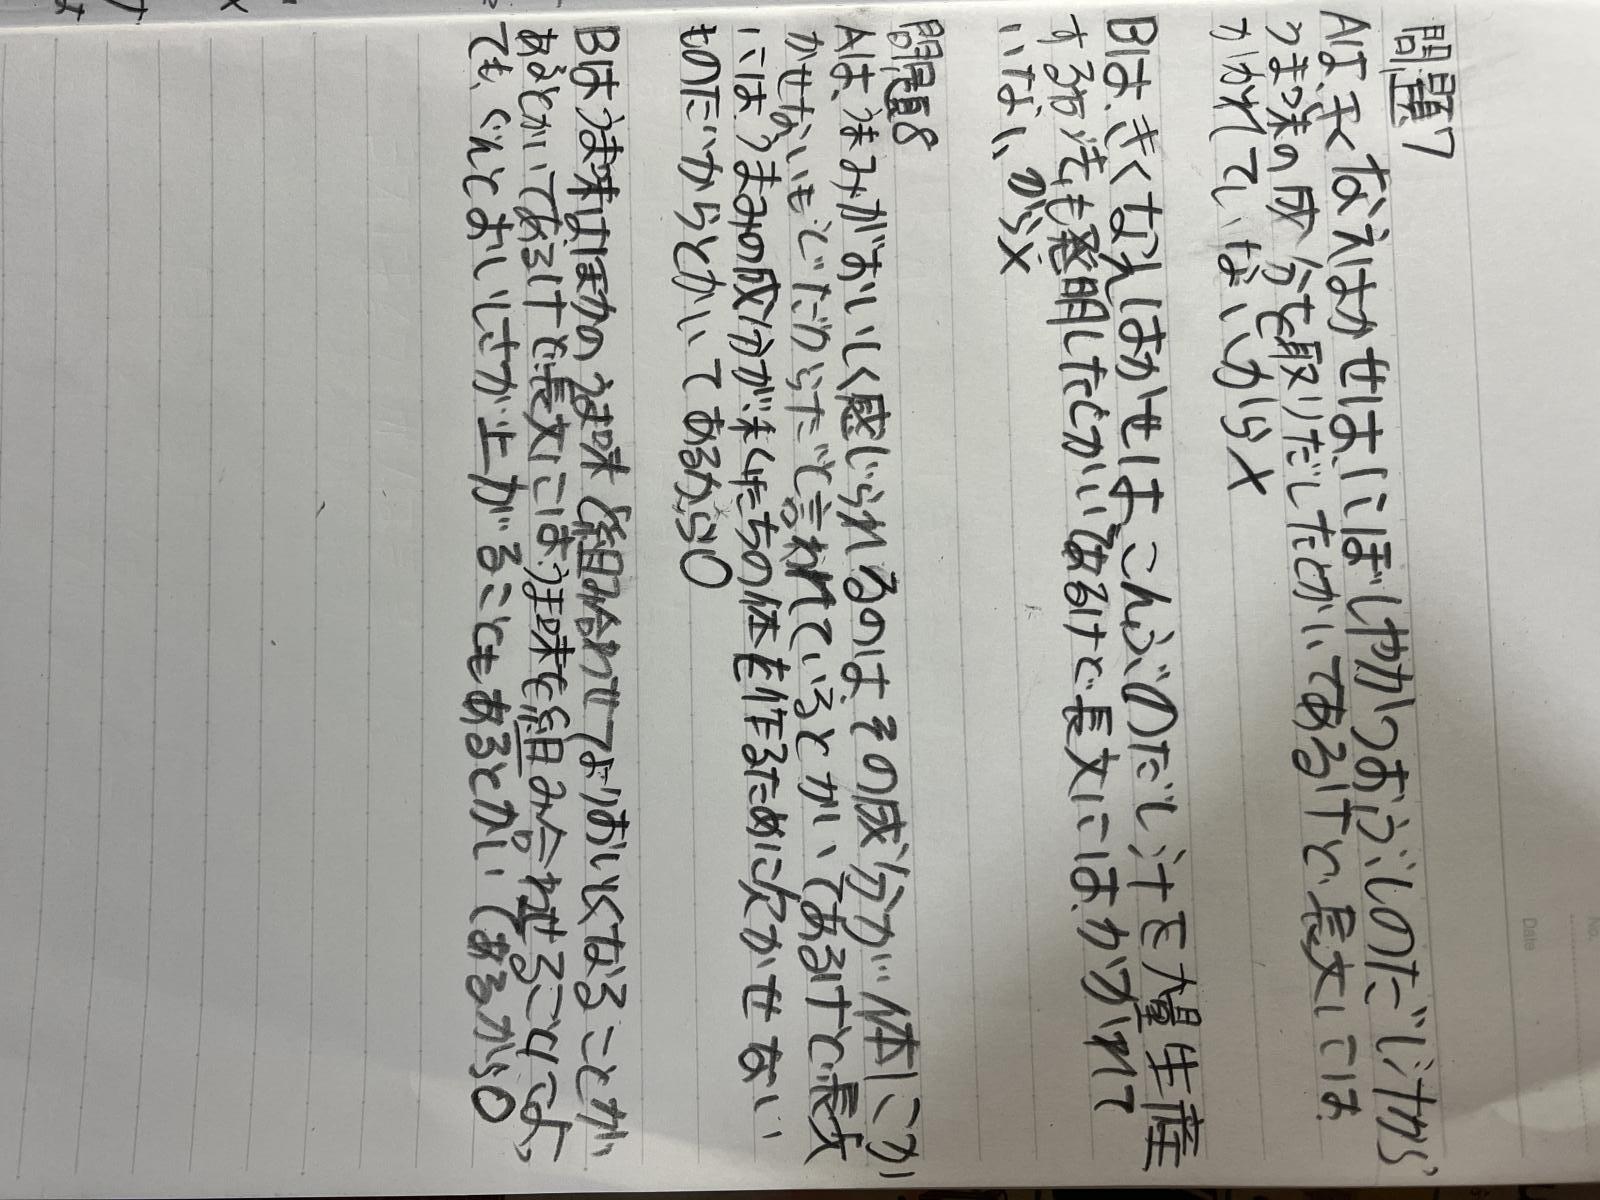 問題7
Aは、永くなえはかせは、にぼしやかつおぶしのだし汁から
うま味の成分を取りだしたとかいてあるけど、長文には
かかれていないから×
Bは、きくなえはかせは、こんぶのだし汁を大量生産
する方ほうを発明したとかいてあるけど、長文には、かかれて
いない、から×
問題8
Aは、うまみがおいしく感じられるのは、その成分が体にか
かせないも だからだと言われているとかいてあるけど、長文
には、うまみの成分が、 たちの体を作るために欠かせない
ものだからとかいてあるから○
Bはうま味は、ほかのうま味と組み合わせてよりおいしくなることが
あるとかいてあるけど、長文には、うま味を組み合わせることで、
でも、ぐんとおいしさが上がることもあるとかい(あるから○
Date
No.